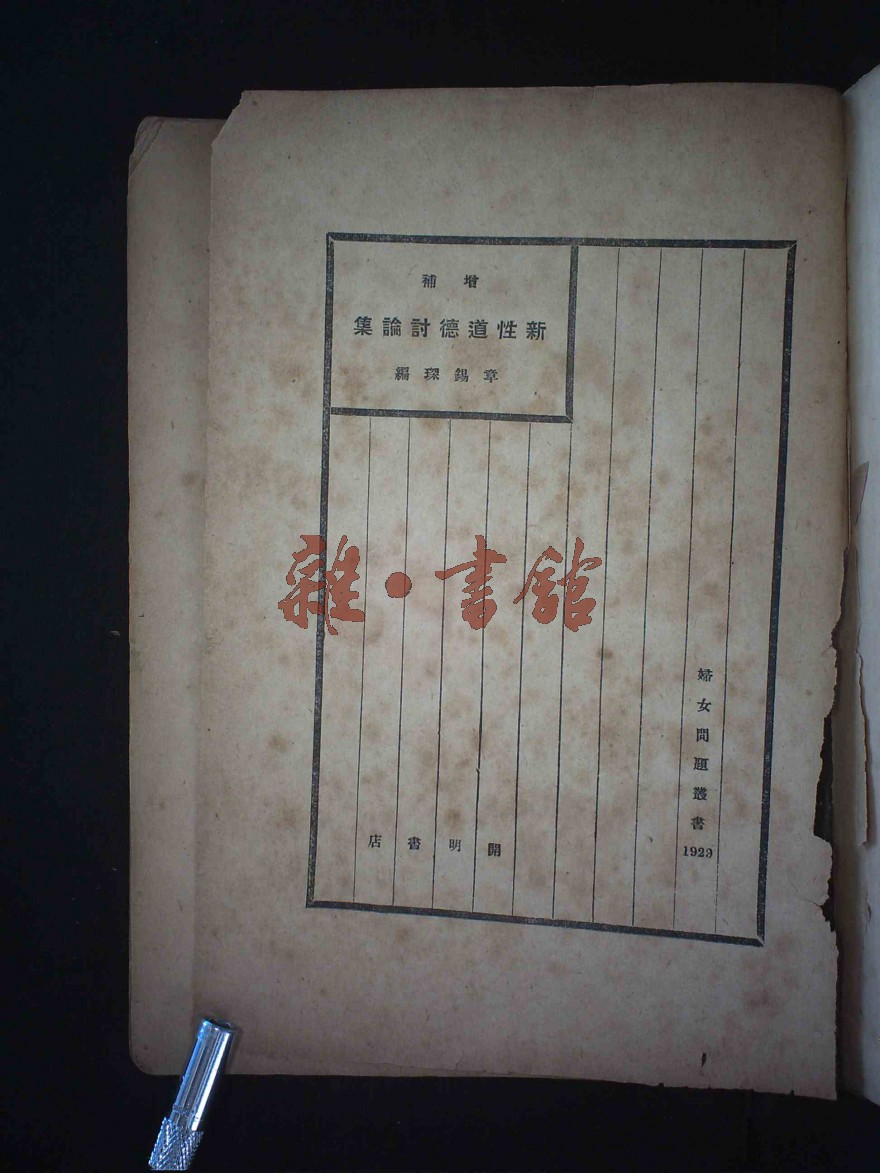 增補
新性道德討論集
章錫琛編
婦女問題叢書
1929
開明書店
雜·書館